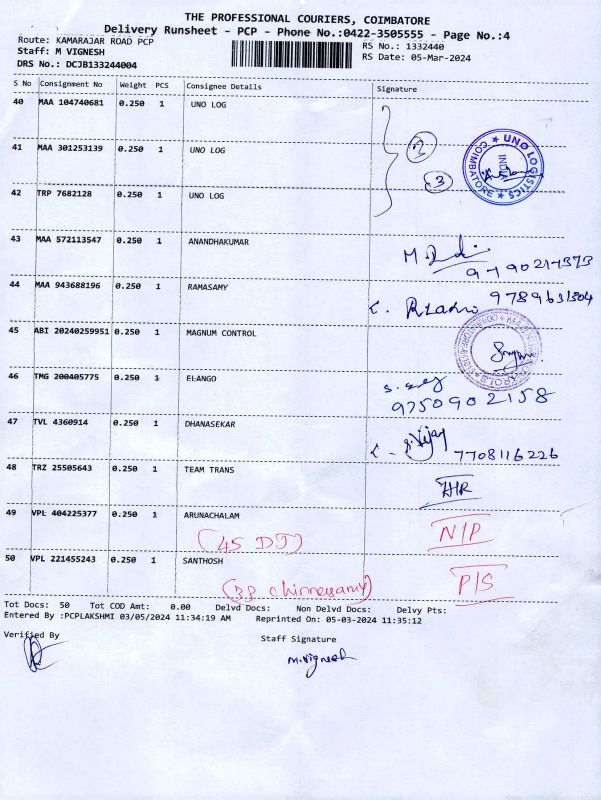 THE PROFESSIONAL COURIERS, COIMBATORE
Delivery Runsheet - PCP - Phone No.:0422-3505555 - Page No.:4
Route: KAMARAJAR ROAD PCP RS No.: 1332440
Staff: M VIGNESH RS Date: 05-Mar-2024
DRS No.: DCJB133244004
S No Consignment No Weight PCS Consignee Details Signature
40 MAA 104740681 0.250 1 UNO LOG
41 MAA 301253139 0.250 1 UNO LOG
3
UNO LOGISTICS ★ COIMBATORE ★
INDIA
42 TRP 7682128 0.250 1 UNO LOG
43 MAA 572113547 0.250 1 ANANDHAKUMAR
44 MAA 943688196 0.250 1 RAMASAMY
45 ABI 20240259951 0.250 1 MAGNUM CONTROL
46 TMG 200405775 0.250 1 ELANGO
9750902158
47 TVL 4360914 0.250 1 DHANASEKAR
7708116226
48 TRZ 25505643 0.250 1 TEAM TRANS
49 VPL 404225377 0.250 1 ARUNACHALAM
N/P
50 VPL 221455243 0.250 1 SANTHOSH
P/S
Tot Docs: 50 Tot COD Amt: 0.00 Delvd Docs: Non Delvd Docs: Delvy Pts:
Entered By :PCPLAKSHMI 03/05/2024 11:34:19 AM Reprinted On: 05-03-2024 11:35:12
Verified By Staff Signature
M.Vignesh